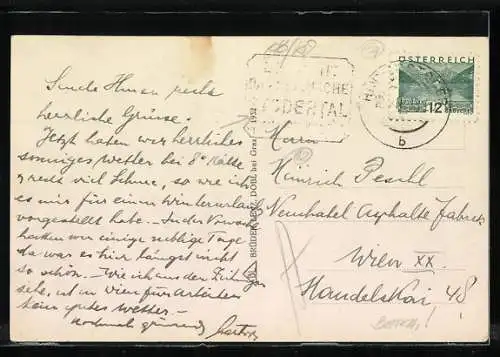 Sende Ihnen recht
herrliche Grüsse.
Jetzt haben wir herrliches
sonniges Wetter bei 8° Kälte
recht viel Schnee, so wie ich
es mir für einen Winterurlaub
vorgestellt habe. In der Vorwoche
hatten wir einige neblige Tage
da war es hier längst nicht
so schön. Wie ich aus den Zeitungen
sehe, ist in Wien für
kein gutes Wetter.
Nochmals
BRÜDER LENZ, DOBL bei Graz 1932
ÖDERTAL
ÖSTERREICH
12
b
Herrn
Heinrich Peschl
Neuchatel Asphalte Fabrick
Wien XX.
Handelskai, 48